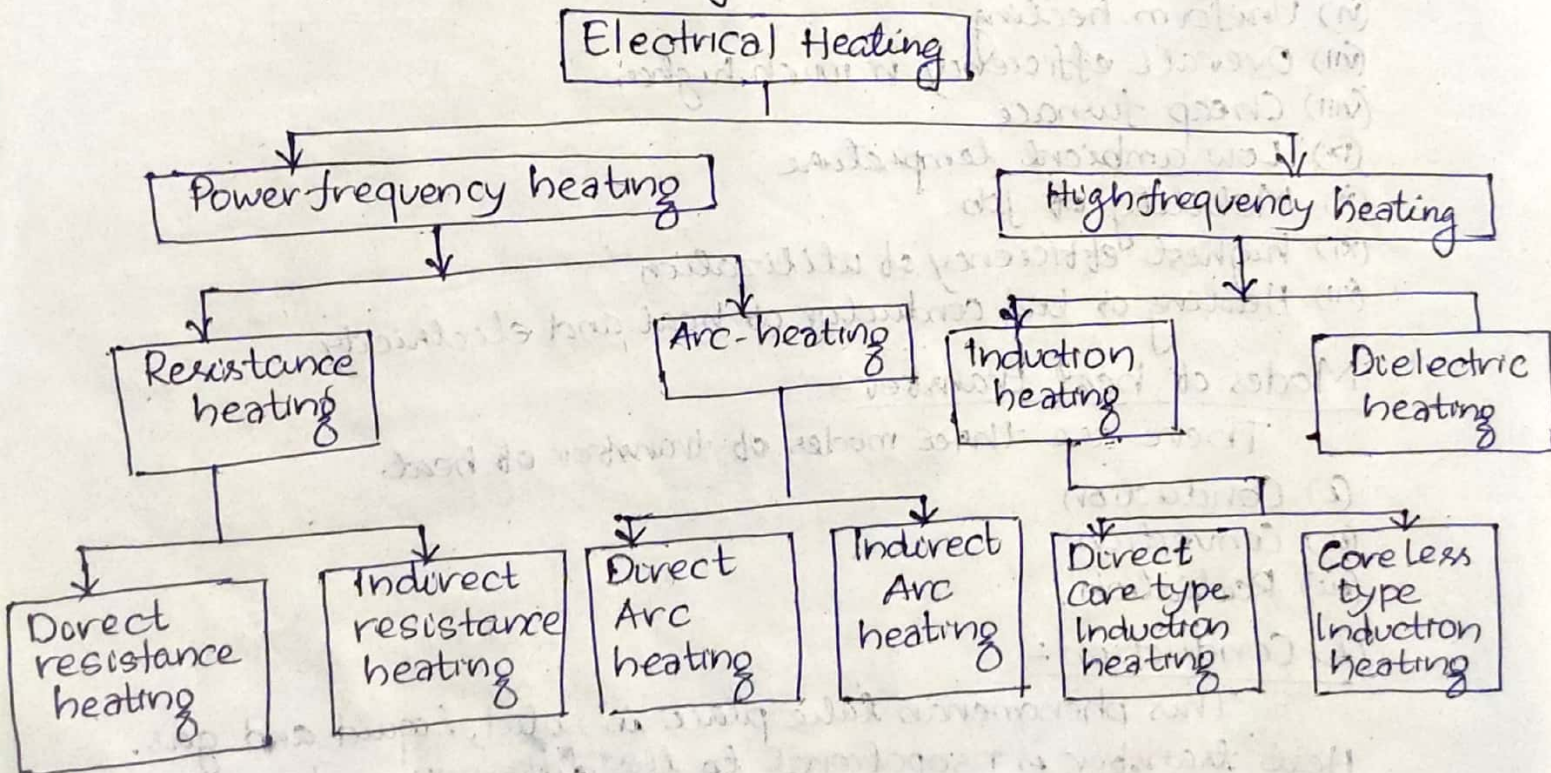 Electrical Heating
Power frequency heating
High frequency heating
Resistance
heating
Arc-heating
Induction
heating
Dielectric
heating
Dorect
resistance
heating
Indirect
resistance
heating
Direct
Arc
heating
Indirect
Arc
heating
Direct
Core type
Induction
heating
Core less
type
Induction
heating